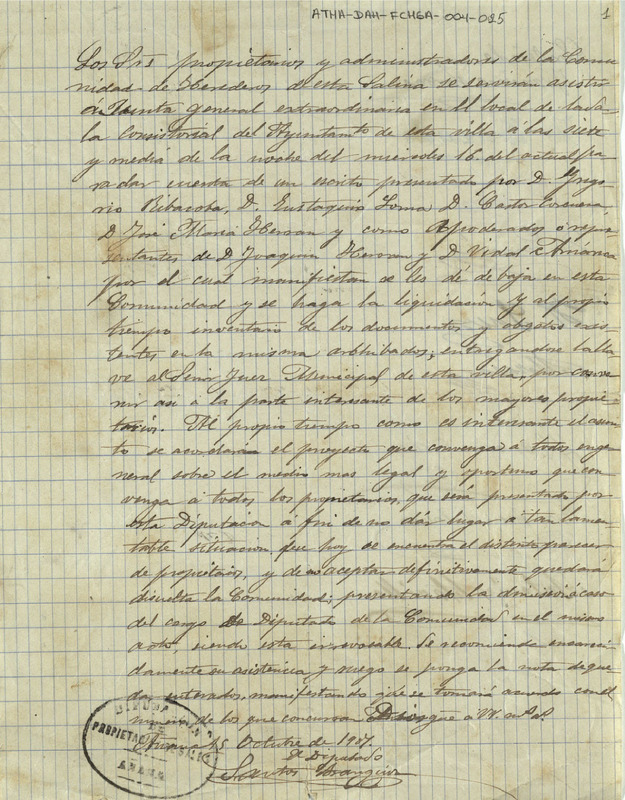 ATHA-DAH-FCHGA-004-025
1
Los Srs propietarios y administradores de la Comu-
nidad de Herederos de esta Salina se servirán asistir
a Junta general extraordinaria en el local de la Sa-
la Consistorial del Ayuntamto de esta villa á las siete
y media de la noche del miercoles 16 del actual pa-
ra dar cuenta de un escrito presentado por D. Grego-
rio Ribacoba, D. Eustaquio Loma D. Castor
D José Maria Herran y como Apoderados ó repre-
sentantes de D Joaquin Herran y D Vidal
por el cual manifiestan se les dé de baja en esta
Comunidad y se haga la liquidacion y al propio
tiempo inventario de los documentos y objetos exis-
tentes en la misma archibados, entregandose la lla-
ve al Señor Juez Municipal de esta villa, por conve-
nir asi a la parte interesante de los mayores propie-
tarios. Al propio tiempo como es interesante el asun-
to se acordara el proyecto que convenga á todos en ge-
neral sobre el medio mas legal y oportuno que con-
venga á todos los propietarios, que será presentado por
esta Diputacion á fin de no dár lugar a tan lamen-
table situacion que hoy se encuentra el distinto parecer
de propietarios, y de no aceptar definitivamente quedará
disuelta la Comunidad; presentando la dimision acaso
del cargo de Diputado de la Comunidad en el mismo
acto, siendo esta irrevocable. Se recomienda encareci-
damente su asistencia y ruego se ponga la nota de que-
dar enterados, manifestando que se tomará acuerdo con el
numero de los que concurran Dios gue a VV. ms as
Anana 15 Octubre de 1907.
El Diputado
Santos
PROPIETA
AÑANA